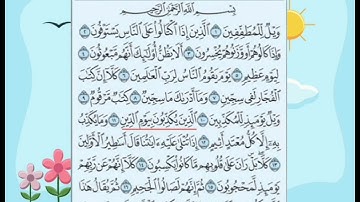 بِسْمِ ٱللَّهِ ٱلرَّحْمَٰنِ ٱلرَّحِيمِ
وَيْلٌ لِّلْمُطَفِّفِينَ ١ ٱلَّذِينَ إِذَا ٱكْتَالُوا۟ عَلَى ٱلنَّاسِ يَسْتَوْفُونَ ٢
وَإِذَا كَالُوهُمْ أَو وَّزَنُوهُمْ يُخْسِرُونَ ٣ أَلَا يَظُنُّ أُو۟لَٰٓئِكَ أَنَّهُم مَّبْعُوثُونَ ٤
لِيَوْمٍ عَظِيمٍ ٥ يَوْمَ يَقُومُ ٱلنَّاسُ لِرَبِّ ٱلْعَٰلَمِينَ ٦ كَلَّآ إِنَّ كِتَٰبَ
ٱلْفُجَّارِ لَفِى سِجِّينٍ ٧ وَمَآ أَدْرَىٰكَ مَا سِجِّينٌ ٨ كِتَٰبٌ مَّرْقُومٌ ٩
وَيْلٌ يَوْمَئِذٍ لِّلْمُكَذِّبِينَ ١٠ ٱلَّذِينَ يُكَذِّبُونَ بِيَوْمِ ٱلدِّينِ ١١ وَمَا يُكَذِّبُ
بِهِۦٓ إِلَّا كُلُّ مُعْتَدٍ أَثِيمٍ ١٢ إِذَا تُتْلَىٰ عَلَيْهِ ءَايَٰتُنَا قَالَ أَسَٰطِيرُ ٱلْأَوَّلِينَ
١٣ كَلَّا بَلْ رَانَ عَلَىٰ قُلُوبِهِم مَّا كَانُوا۟ يَكْسِبُونَ ١٤ كَلَّآ إِنَّهُمْ عَن رَّبِّهِمْ
يَوْمَئِذٍ لَّمَحْجُوبُونَ ١٥ ثُمَّ إِنَّهُمْ لَصَالُوا۟ ٱلْجَحِيمِ ١٦ ثُمَّ يُقَالُ هَٰذَا